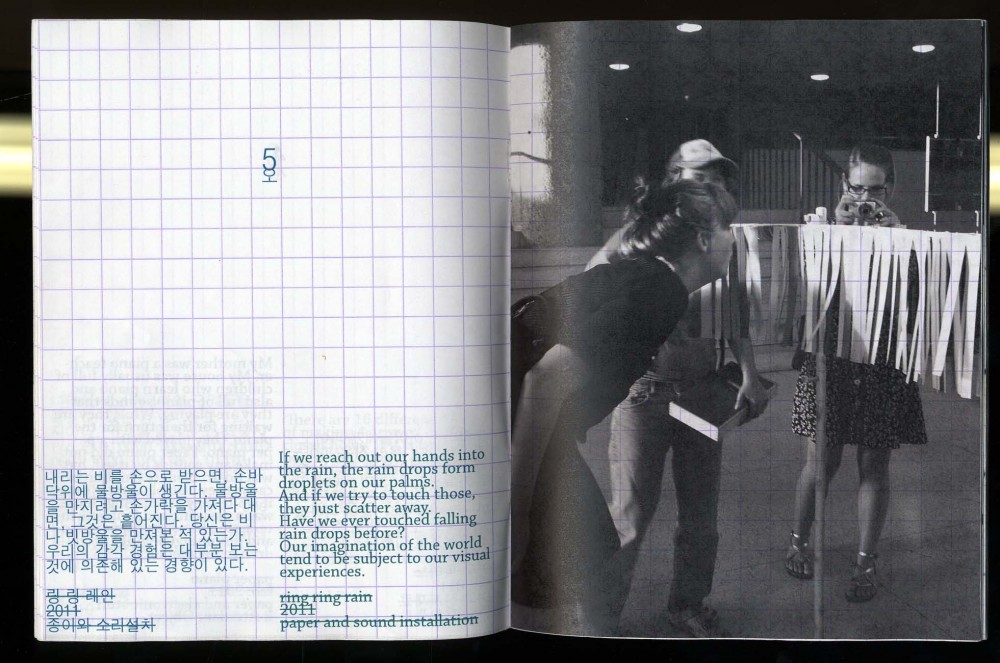 5
오
내리는 비를 손으로 받으면, 손바
닥위에 물방울이 생긴다. 물방울
을 만지려고 손가락을 가져다 대
면, 그것은 흩어진다. 당신은 비
나 빗방울을 만져본 적 있는가.
우리의 감각 경험은 대부분 보는
것에 의존해 있는 경향이 있다.
링 링 레인
2011
종이와 소리설치
If we reach out our hands into
the rain, the rain drops form
droplets on our palms.
And if we try to touch those,
they just scatter away.
Have we ever touched falling
rain drops before?
Our imagination of the world
tend to be subject to our visual
experiences.
ring ring rain
2011
paper and sound installation